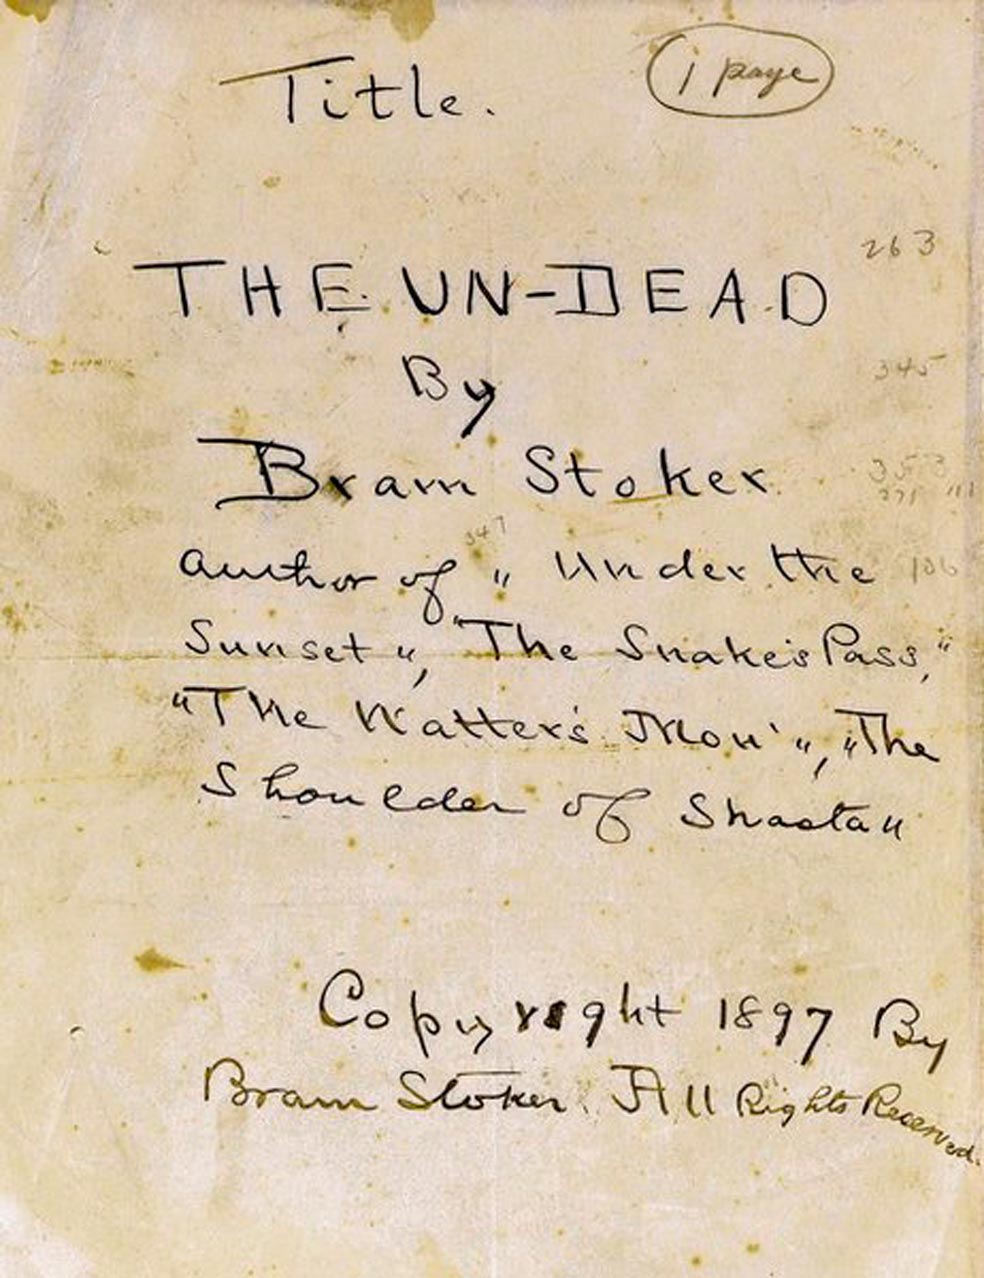 Title.
1 page
263
THE UN-DEAD
By
345
Bram Stoker
353
347
author of " Under the
106
Sunset ", "The Snake's Pass,"
"The Watter's Mou' ", "The
Shoulder of Shasta"
Copyright 1897 By
Bram Stoker. All Rights Reserved.